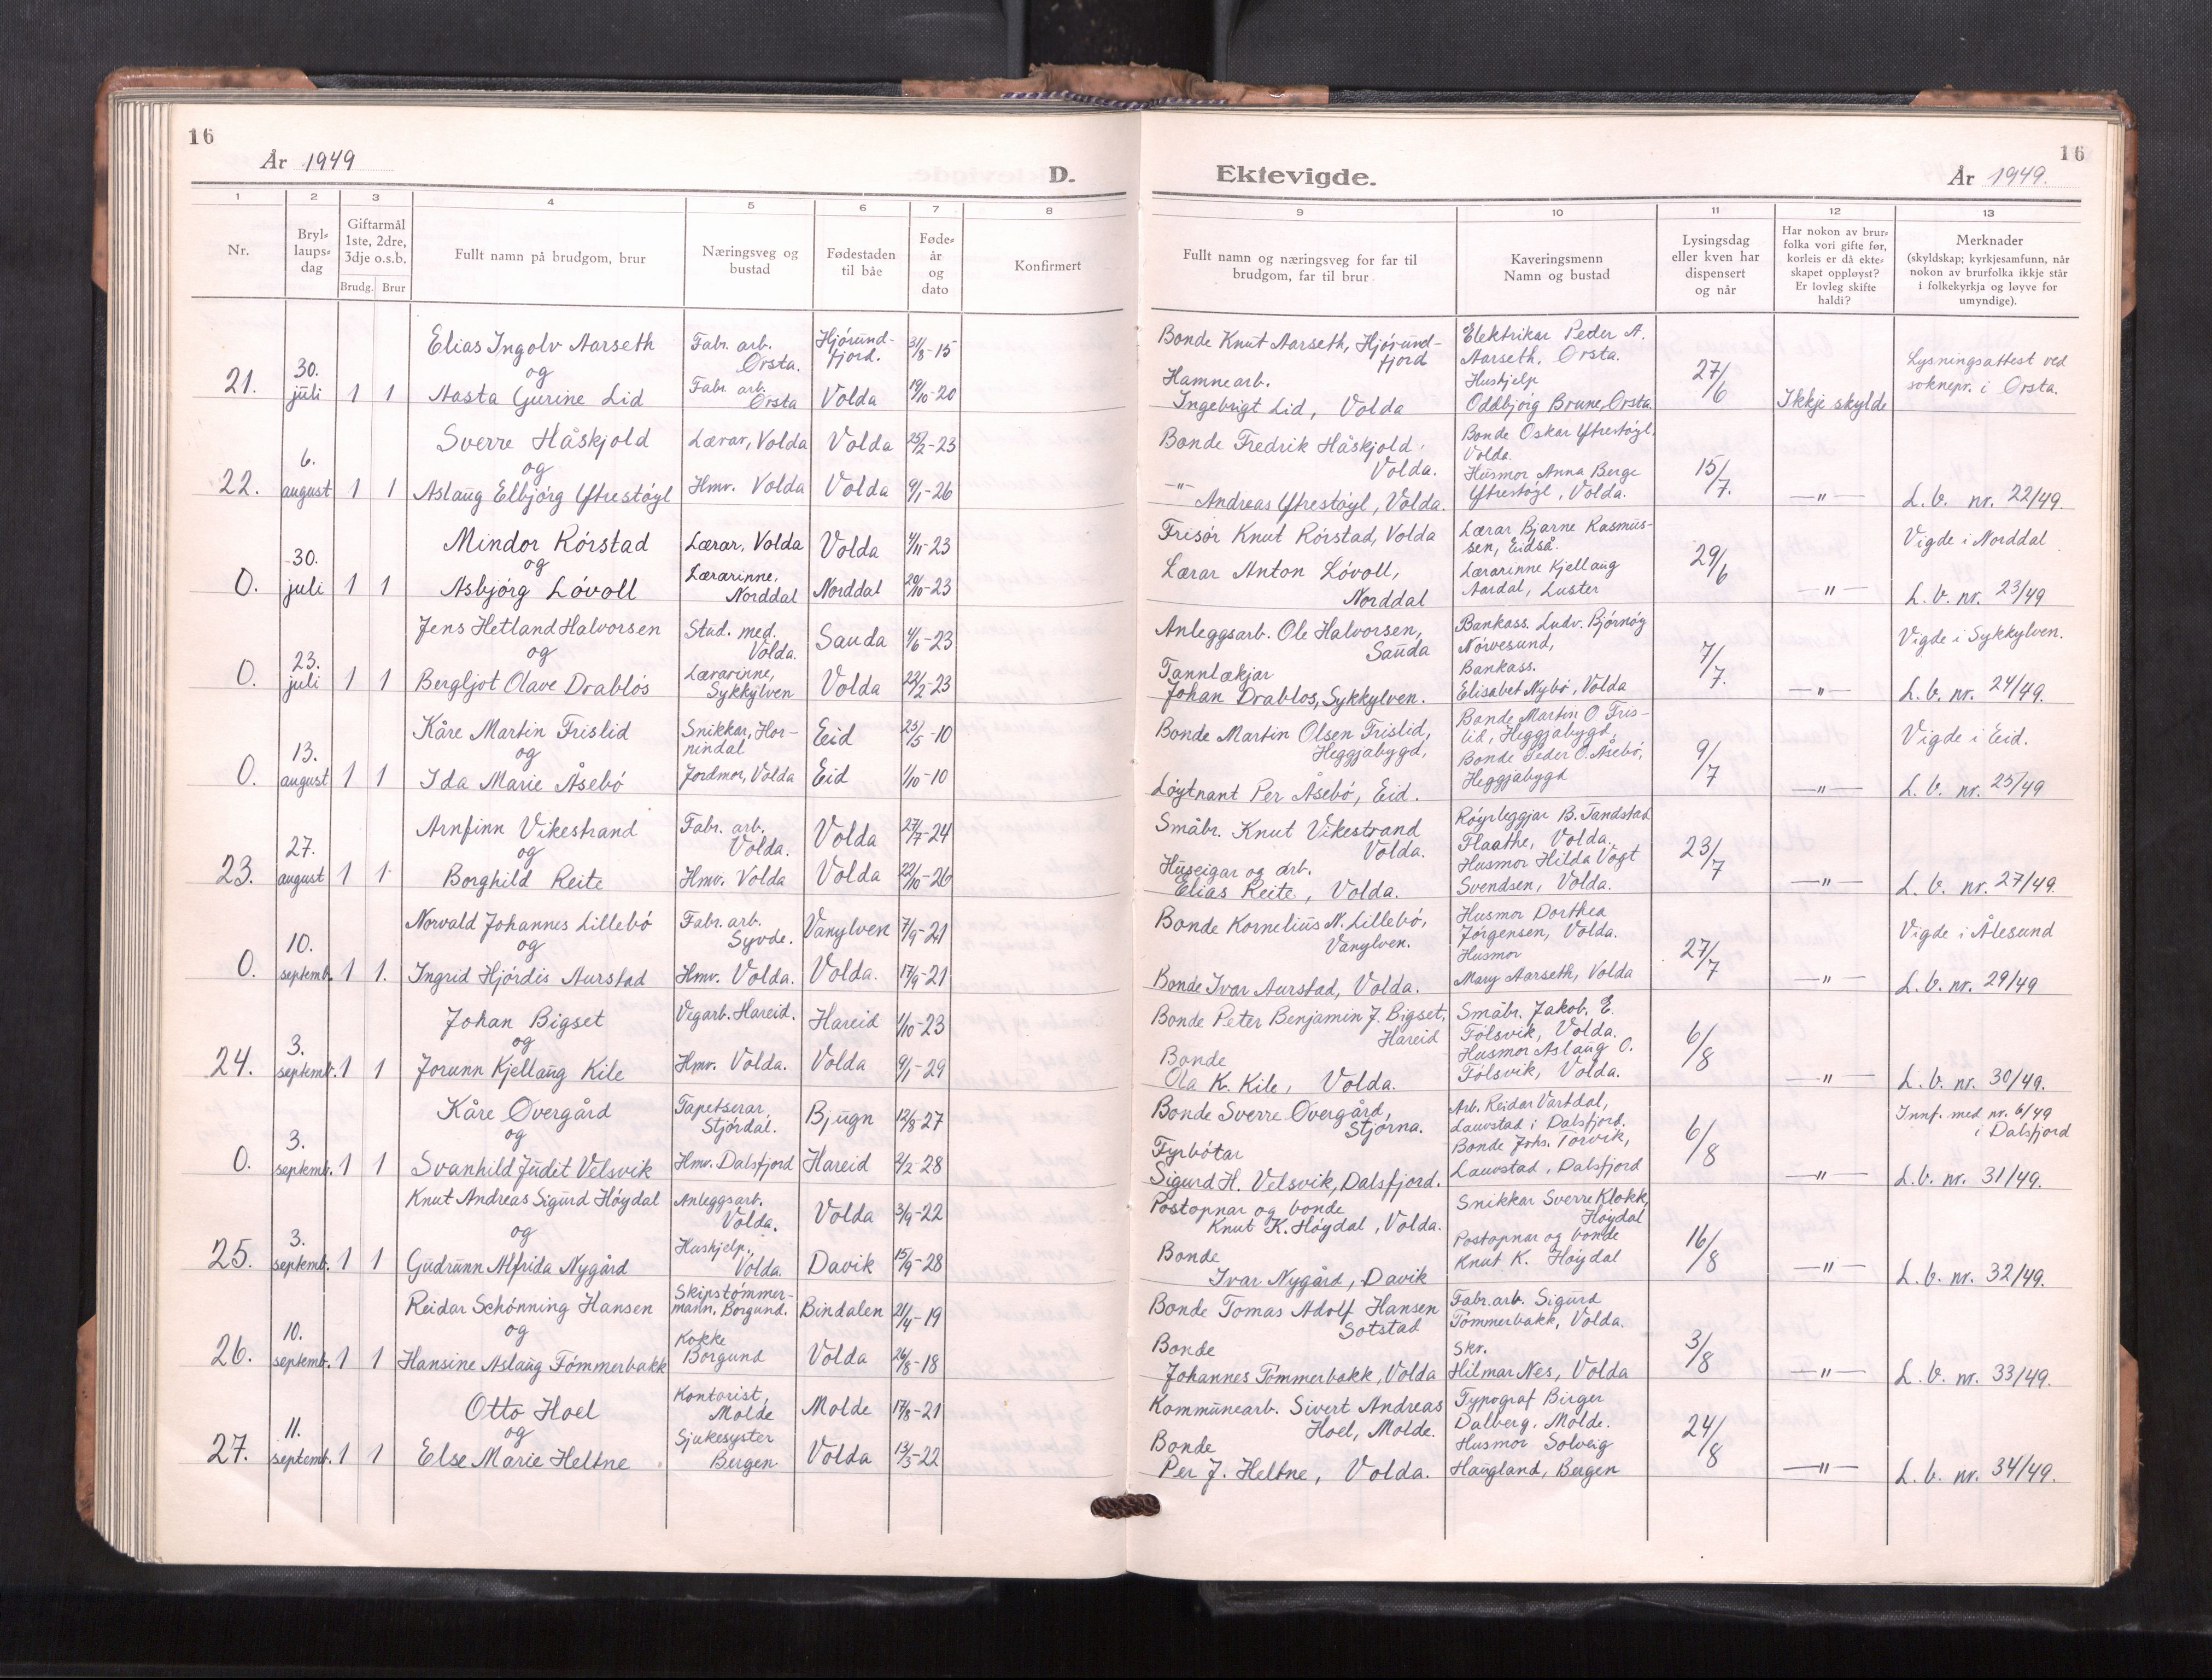 16
År 1949
D.
1 2 3 4 5 6 7 8
Nr.
Bryl-
laups-
dag
Giftarmål
1ste, 2dre,
3dje o.s.b.
Brudg. Brur
Fullt namn på brudgom, brur
Næringsveg og
bustad
Fødestaden
til båe
Føde-
år
og
dato
Konfirmert
Ektevigde.
År 1949.
16
9 10 11 12 13
Fullt namn og næringsveg for far til
brudgom, far til brur
Kaveringsmenn
Namn og bustad
Lysingsdag
eller kven har
dispensert
og når
Har nokon av brur-
folka vori gifte før,
korleis er då ekte-
skapet oppløyst?
Er lovleg skifte
haldi?
Merknader
(skyldskap; kyrkjesamfunn, når
nokon av brurfolka ikkje står
i folkekyrkja og løyve for
umyndige).
21.
30.
juli
1 1
Elias Ingolv Aarseth
og
Aasta Gurine Lid
Fabr. arb.
Ørsta.
Fabr. arb.
Ørsta
Hjørund-
fjord.
Volda
31/8-15
19/10-20
Bonde Knut Aarseth, Hjørund-
fjord
Hamnearb.
Ingebrigt Lid, Volda
Elektrikar Peder A.
Aarseth, Ørsta.
Hushjelp
Oddbjørg Brune, Ørsta.
27/6
Ikkje skylde
Lysningsattest ved
soknepr. i Ørsta.
22.
6.
august
1 1
Sverre Håskjold
og
Aslaug Elbjørg Ytrestøyl
Lærar, Volda
Hmv. Volda
Volda
Volda
25/2-23
9/1-26
Bonde Fredrik Håskjold.
Volda.
-"-
Andreas Ytrestøyl, Volda.
Bonde Oskar Ytrestøyl.
Volda.
Husmor Anna Berge
Ytrestøyl, Volda.
15/7.
—"—
L. b. nr. 22/49.
0.
30.
juli
1 1
Mindor Rørstad
og
Asbjørg Løvoll
Lærar, Volda
Lærarinne,
Norddal
Volda
Norddal
4/11-23
20/10-23
Frisør Knut Rørstad, Volda
Lærar Anton Løvoll,
Norddal
Lærar Bjarne Rasmus-
sen, Eidså.
Lærarinne Kjellaug
Aardal, Luster
29/6
—"—
Vigde i Norddal
L. b. nr. 23/49
0.
23.
juli
1 1
Jens Hetland Halvorsen
og
Bergljot Olave Drabløs
Stud. med.
Volda.
Lærarinne,
Sykkylven
Sauda
Volda
4/6-23
22/2-23
Anleggsarb. Ole Halvorsen,
Sauda
Tannlækjar
Johan Drabløs, Sykkylven.
Bankass. Ludv. Bjørnøy
Nørvesund,
Bankass.
Elisabet Nybø, Volda
7/7.
—"—
Vigde i Sykkylven.
L. b. nr. 24/49.
0.
13.
august
1 1
Kåre Martin Frislid
og
Ida Marie Åsebø
Snikkar, Hor-
nindal
Jordmor, Volda
Eid
Eid
25/5-10
1/10-10
Bonde Martin Olsen Frislid,
Heggjabygd,
Løytnant Per Åsebø, Eid.
Bonde Martin O. Fris-
lid, Heggjabygd,
Bonde Peder O. Åsebø,
Heggjabygd
9/7
—"—
Vigde i Eid.
L. b. nr. 25/49
23.
27.
august
1 1
Arnfinn Vikestrand
og
Borghild Reite
Fabr. arb.
Volda.
Hmv. Volda
Volda
Volda
27/7-24
22/10-26
Småbr. Knut Vikestrand
Volda.
Huseigar og arb.
Elias Reite, Volda.
Røyrleggjar B. Tandstad
Flaathe, Volda.
Husmor Hilda Vogt
Svendsen, Volda.
23/7
—"—
L. b. nr. 27/49.
0.
10.
septemb.
1 1.
Norvald Johannes Lillebø
og
Ingrid Hjørdis Aurstad
Fabr. arb.
Syvde.
Hmv. Volda.
Vanylven
Volda.
7/9-21
17/9-21
Bonde Kornelius N. Lillebø,
Vanylven.
Bonde Ivar Aurstad, Volda.
Husmor Dorthea
Jørgensen, Volda.
Husmor
Mary Aarseth, Volda
27/7
—"—
Vigde i Ålesund
L. b. nr. 29/49
24.
3.
septemb.
1 1
Johan Bigset
og
Jorunn Kjellaug Kile
Vegarb. Hareid.
Hmv. Volda.
Hareid
Volda
1/10-23
9/1-29
Bonde Peter Benjamin J. Bigset,
Hareid
Bonde
Ola K. Kile, Volda.
Småbr. Jakob. E.
Følsvik, Volda.
Husmor Aslaug O.
Følsvik, Volda.
6/8
—"—
L. b. nr. 30/49.
0.
3.
septemb.
1 1
Kåre Øvergård
og
Svanhild Judit Velsvik
Tapetserar,
Stjørdal.
Hmv. Dalsfjord
Bjugn
Hareid
12/8-27
2/2-28
Bonde Sverre Øvergård,
Stjørna.
Fyrbøtar
Sigurd H. Velsvik, Dalsfjord.
Arb. Reidar Vartdal,
Lauvstad i Dalsfjord.
Bonde Johs. Torvik,
Lauvstad, Dalsfjord
6/8
—"—
Innf. med nr. 6/49
i Dalsfjord
L. b. nr. 31/49.
25.
3.
septemb.
1 1
Knut Andreas Sigurd Høydal
og
Gudrunn Alfrida Nygård
Anleggsarb.
Volda.
Hushjelp.,
Volda.
Volda
Davik
3/9-22
15/9-28
Postopnar og bonde
Knut K. Høydal, Volda.
Bonde
Ivar Nygård, Davik
Snikkar Sverre Klokk,
Høydal
Postopnar og bonde
Knut K. Høydal
16/8
—"—
L. b. nr. 32/49.
26.
10.
septemb.
1 1
Reidar Schønning Hansen
og
Hansine Aslaug Tømmerbakk
Skipstømmer-
mann, Borgund.
Kokke
Borgund
Bindalen
Volda
21/4-19
26/8-18
Bonde Tomas Adolf Hansen
Sotstad
Bonde
Johannes Tømmerbakk, Volda
Fabr. arb. Sigurd
Tømmerbakk, Volda.
Skr.
Hilmar Nes, Volda
3/8
—"—
L. b. nr. 33/49.
27.
11.
septemb.
1 1
Otto Hoel
og
Else Marie Heltne
Kontorist,
Molde
Sjukesyster
Bergen
Molde
Volda
17/8-21
13/3-22
Kommunearb. Sivert Andreas
Hoel, Molde.
Bonde
Per J. Heltne, Volda.
Typograf Birger
Dalberg, Molde.
Husmor Solveig
Haugland, Bergen
24/8
—"—
L. b. nr. 34/49.